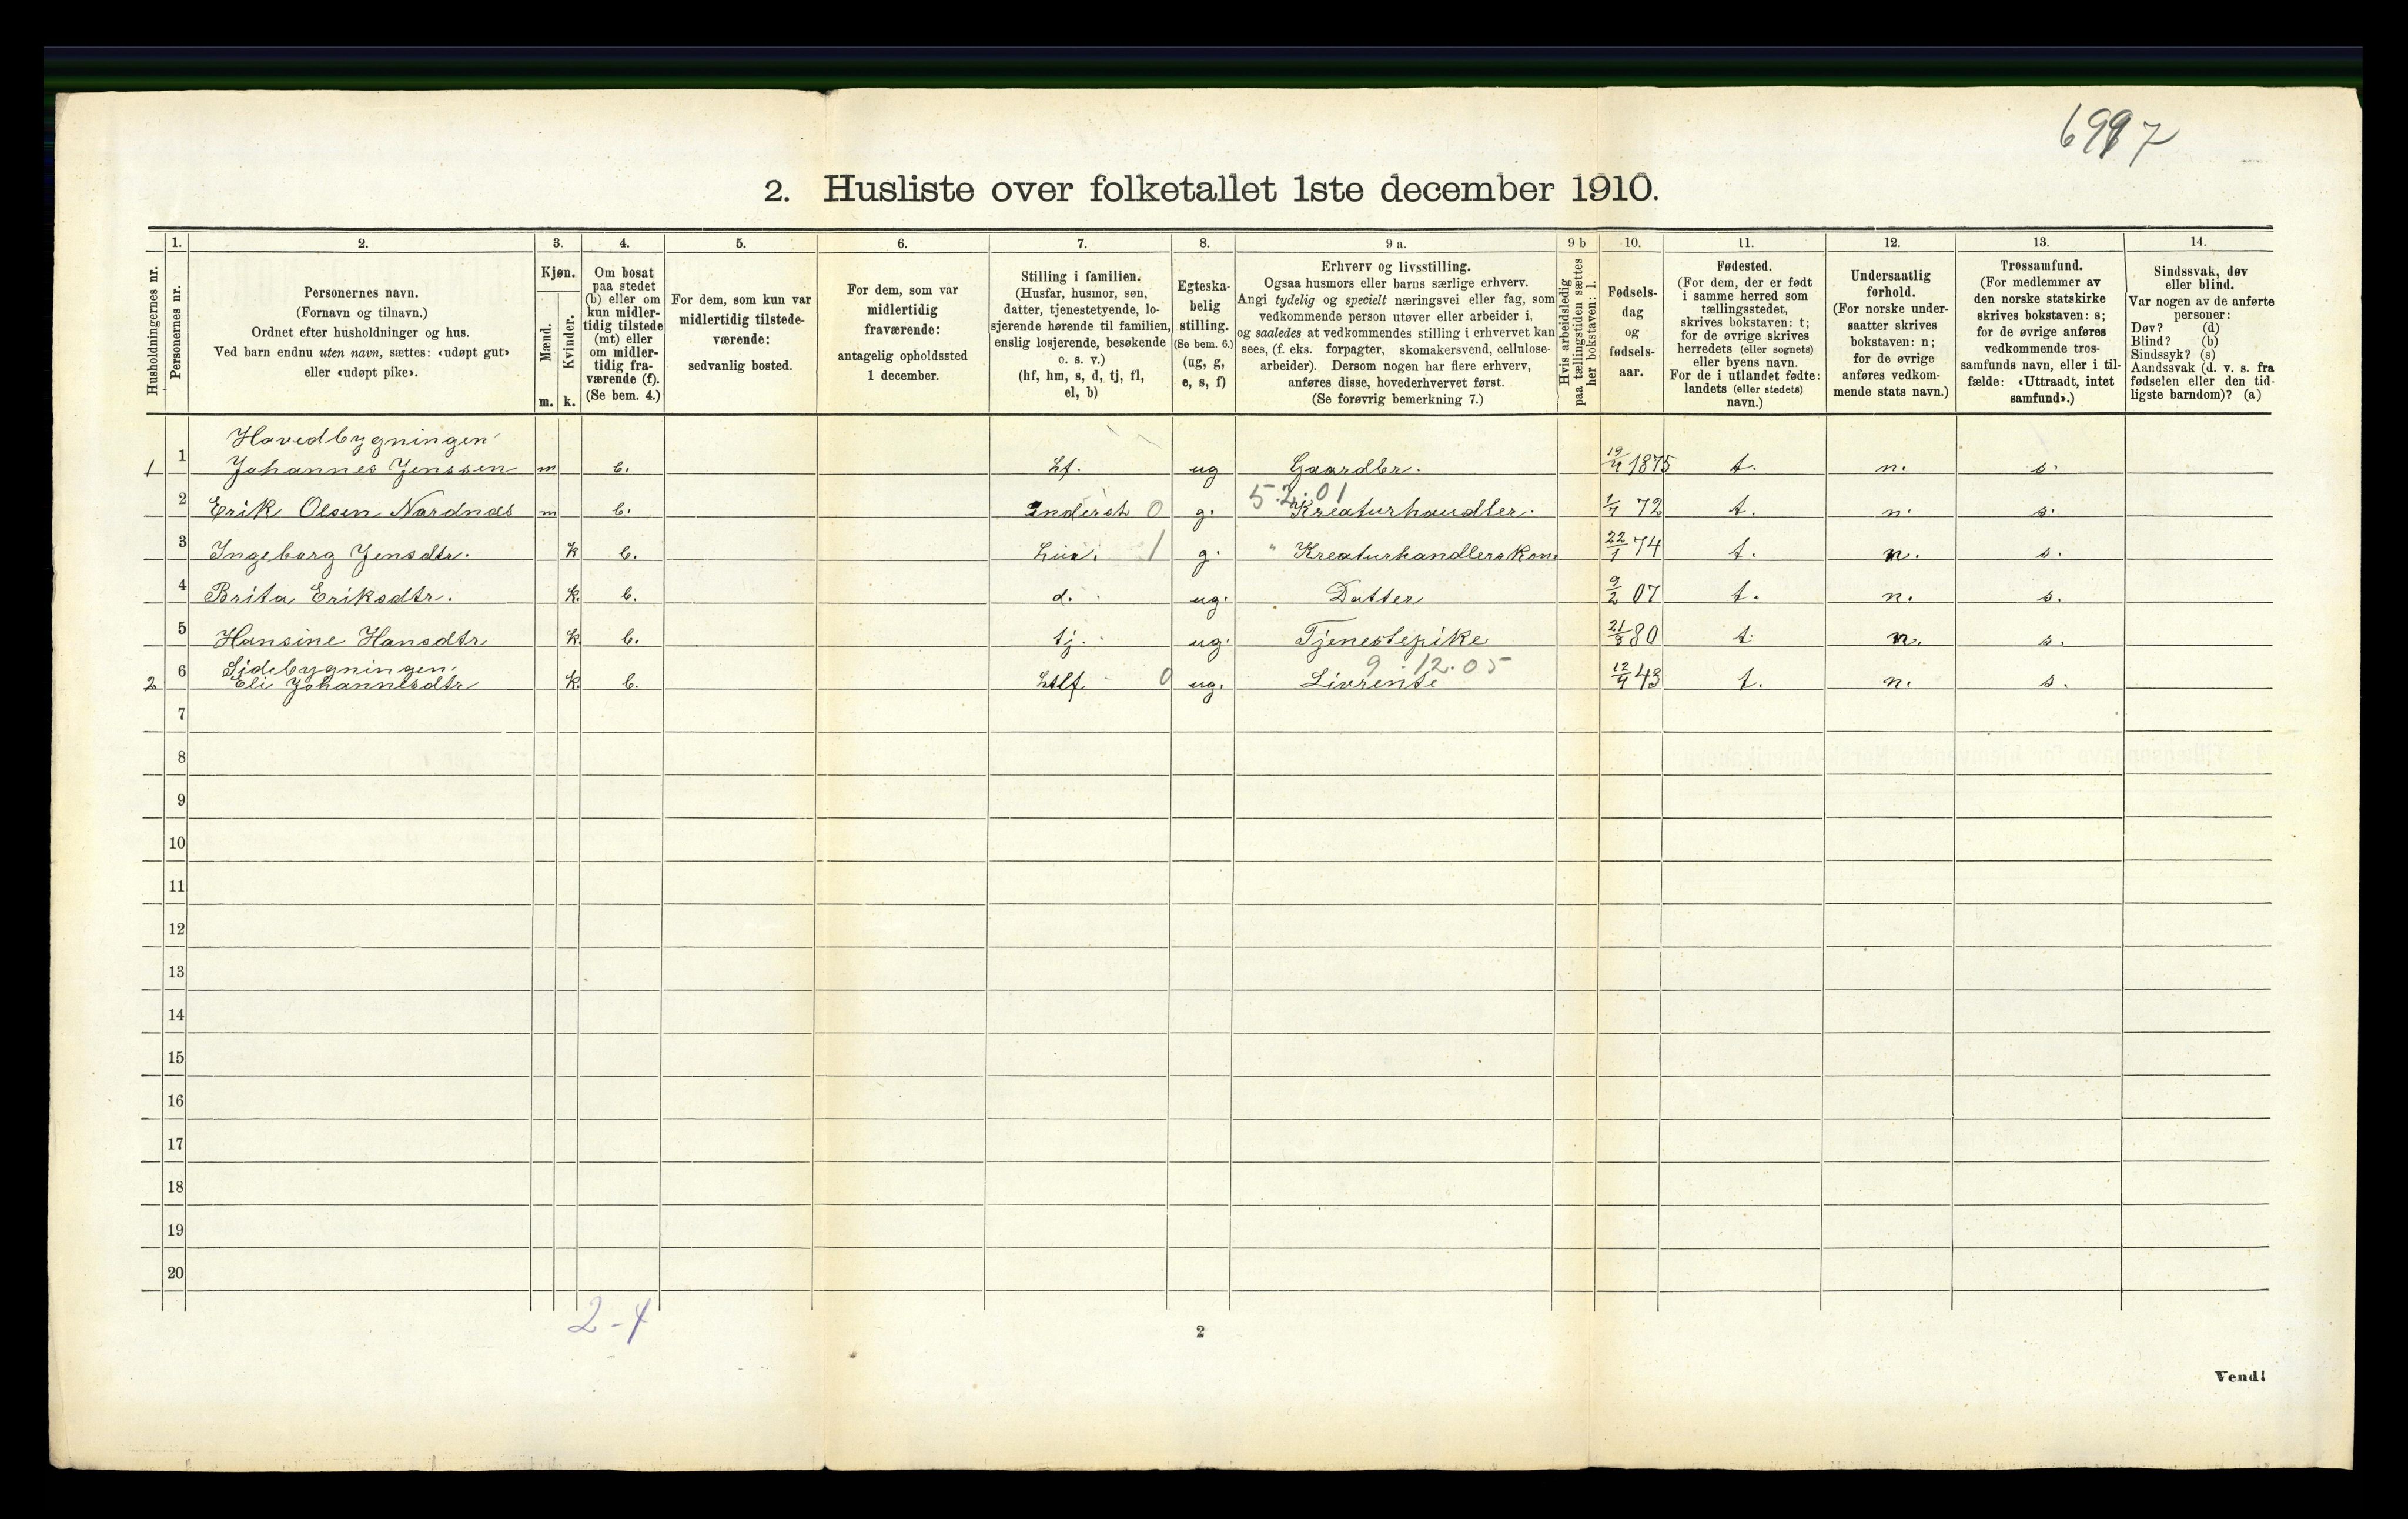 6997
2. Husliste over folketallet 1ste december 1910.
Husholdningernes nr.
1.
Personernes nr.
2.
Personernes navn.
(Fornavn og tilnavn.)
Ordnet efter husholdninger og hus.
Ved barn endnu uten navn, sættes: «udøpt gut»
eller «udøpt pike».
3.
Kjøn.
Mænd.
Kvinder.
m. k.
4.
Om bosat
paa stedet
(b) eller om
kun midler-
tidig tilstede
(mt) eller
om midler-
tidig fra-
værende (f).
(Se bem. 4.)
5.
For dem, som kun var
midlertidig tilstede-
værende:
sedvanlig bosted.
6.
For dem, som var
midlertidig
fraværende:
antagelig opholdssted
1 december.
7.
Stilling i familien.
(Husfar, husmor, søn,
datter, tjenestetyende, lo-
sjerende hørende til familien,
enslig losjerende, besøkende
o. s. v.)
(hf, hm, s, d, tj, fl,
el, b)
8.
Egteska-
belig
stilling.
(Se bem. 6.)
(ug, g,
e, s, f)
9 a.
Erhverv og livsstilling.
Ogsaa husmors eller barns særlige erhverv.
Angi tydelig og specielt næringsvei eller fag, som
vedkommende person utøver eller arbeider i,
og saaledes at vedkommendes stilling i erhvervet kan
sees, (f. eks. forpagter, skomakersvend, cellulose-
arbeider). Dersom nogen har flere erhverv,
anføres disse, hovederhvervet først.
(Se forøvrig bemerkning 7.)
9 b
Hvis arbeidsledig
paa tællingstiden sættes
her bokstaven: l.
10.
Fødsels-
dag
og
fødsels-
aar.
11.
Fødested.
(For dem, der er født
i samme herred som
tællingsstedet,
skrives bokstaven: t;
for de øvrige skrives
herredets (eller sognets)
eller byens navn.
For de i utlandet fødte:
landets (eller stedets)
navn.)
12.
Undersaatlig
forhold.
(For norske under-
saatter skrives
bokstaven: n;
for de øvrige
anføres vedkom-
mende stats navn.)
13.
Trossamfund.
(For medlemmer av
den norske statskirke
skrives bokstaven: s;
for de øvrige anføres
vedkommende tros-
samfunds navn, eller i til-
fælde: «Uttraadt, intet
samfund».)
14.
Sindssvak, døv
eller blind.
Var nogen av de anførte
personer:
Døv? (d)
Blind? (b)
Sindssyk? (s)
Aandssvak (d. v. s. fra
fødselen eller den tid-
ligste barndom)? (a)
Hovedbygningen
1 1 Johannes Jenssen m b. hf. ug Gaardbr. 19/4 1875 t. n. s.
5.2.01
2 Erik Olsen Nordnæs m b. Inderst 0 g. Kreaturhandler. 72 t. n. s.
3 Ingeborg Jensdtr. k b. 1 g. " Kreaturhandlerskone 22/1 74 t. n. s.
4 Brita Eriksdtr. k. b. d. ug. Datter 9/2 07 t. n. s.
5 Hansine Hansdtr k b. tj. ug. Tjenestepike 21/8 80 t. n. s.
Sidebygningen.
9.12.05
2 6 Eli Johannesdtr k. b. 0 ug. Livrente 43 t. n. s.
7
8
9
10
11
12
13
14
15
16
17
18
19
20
2-4
2
Vend!